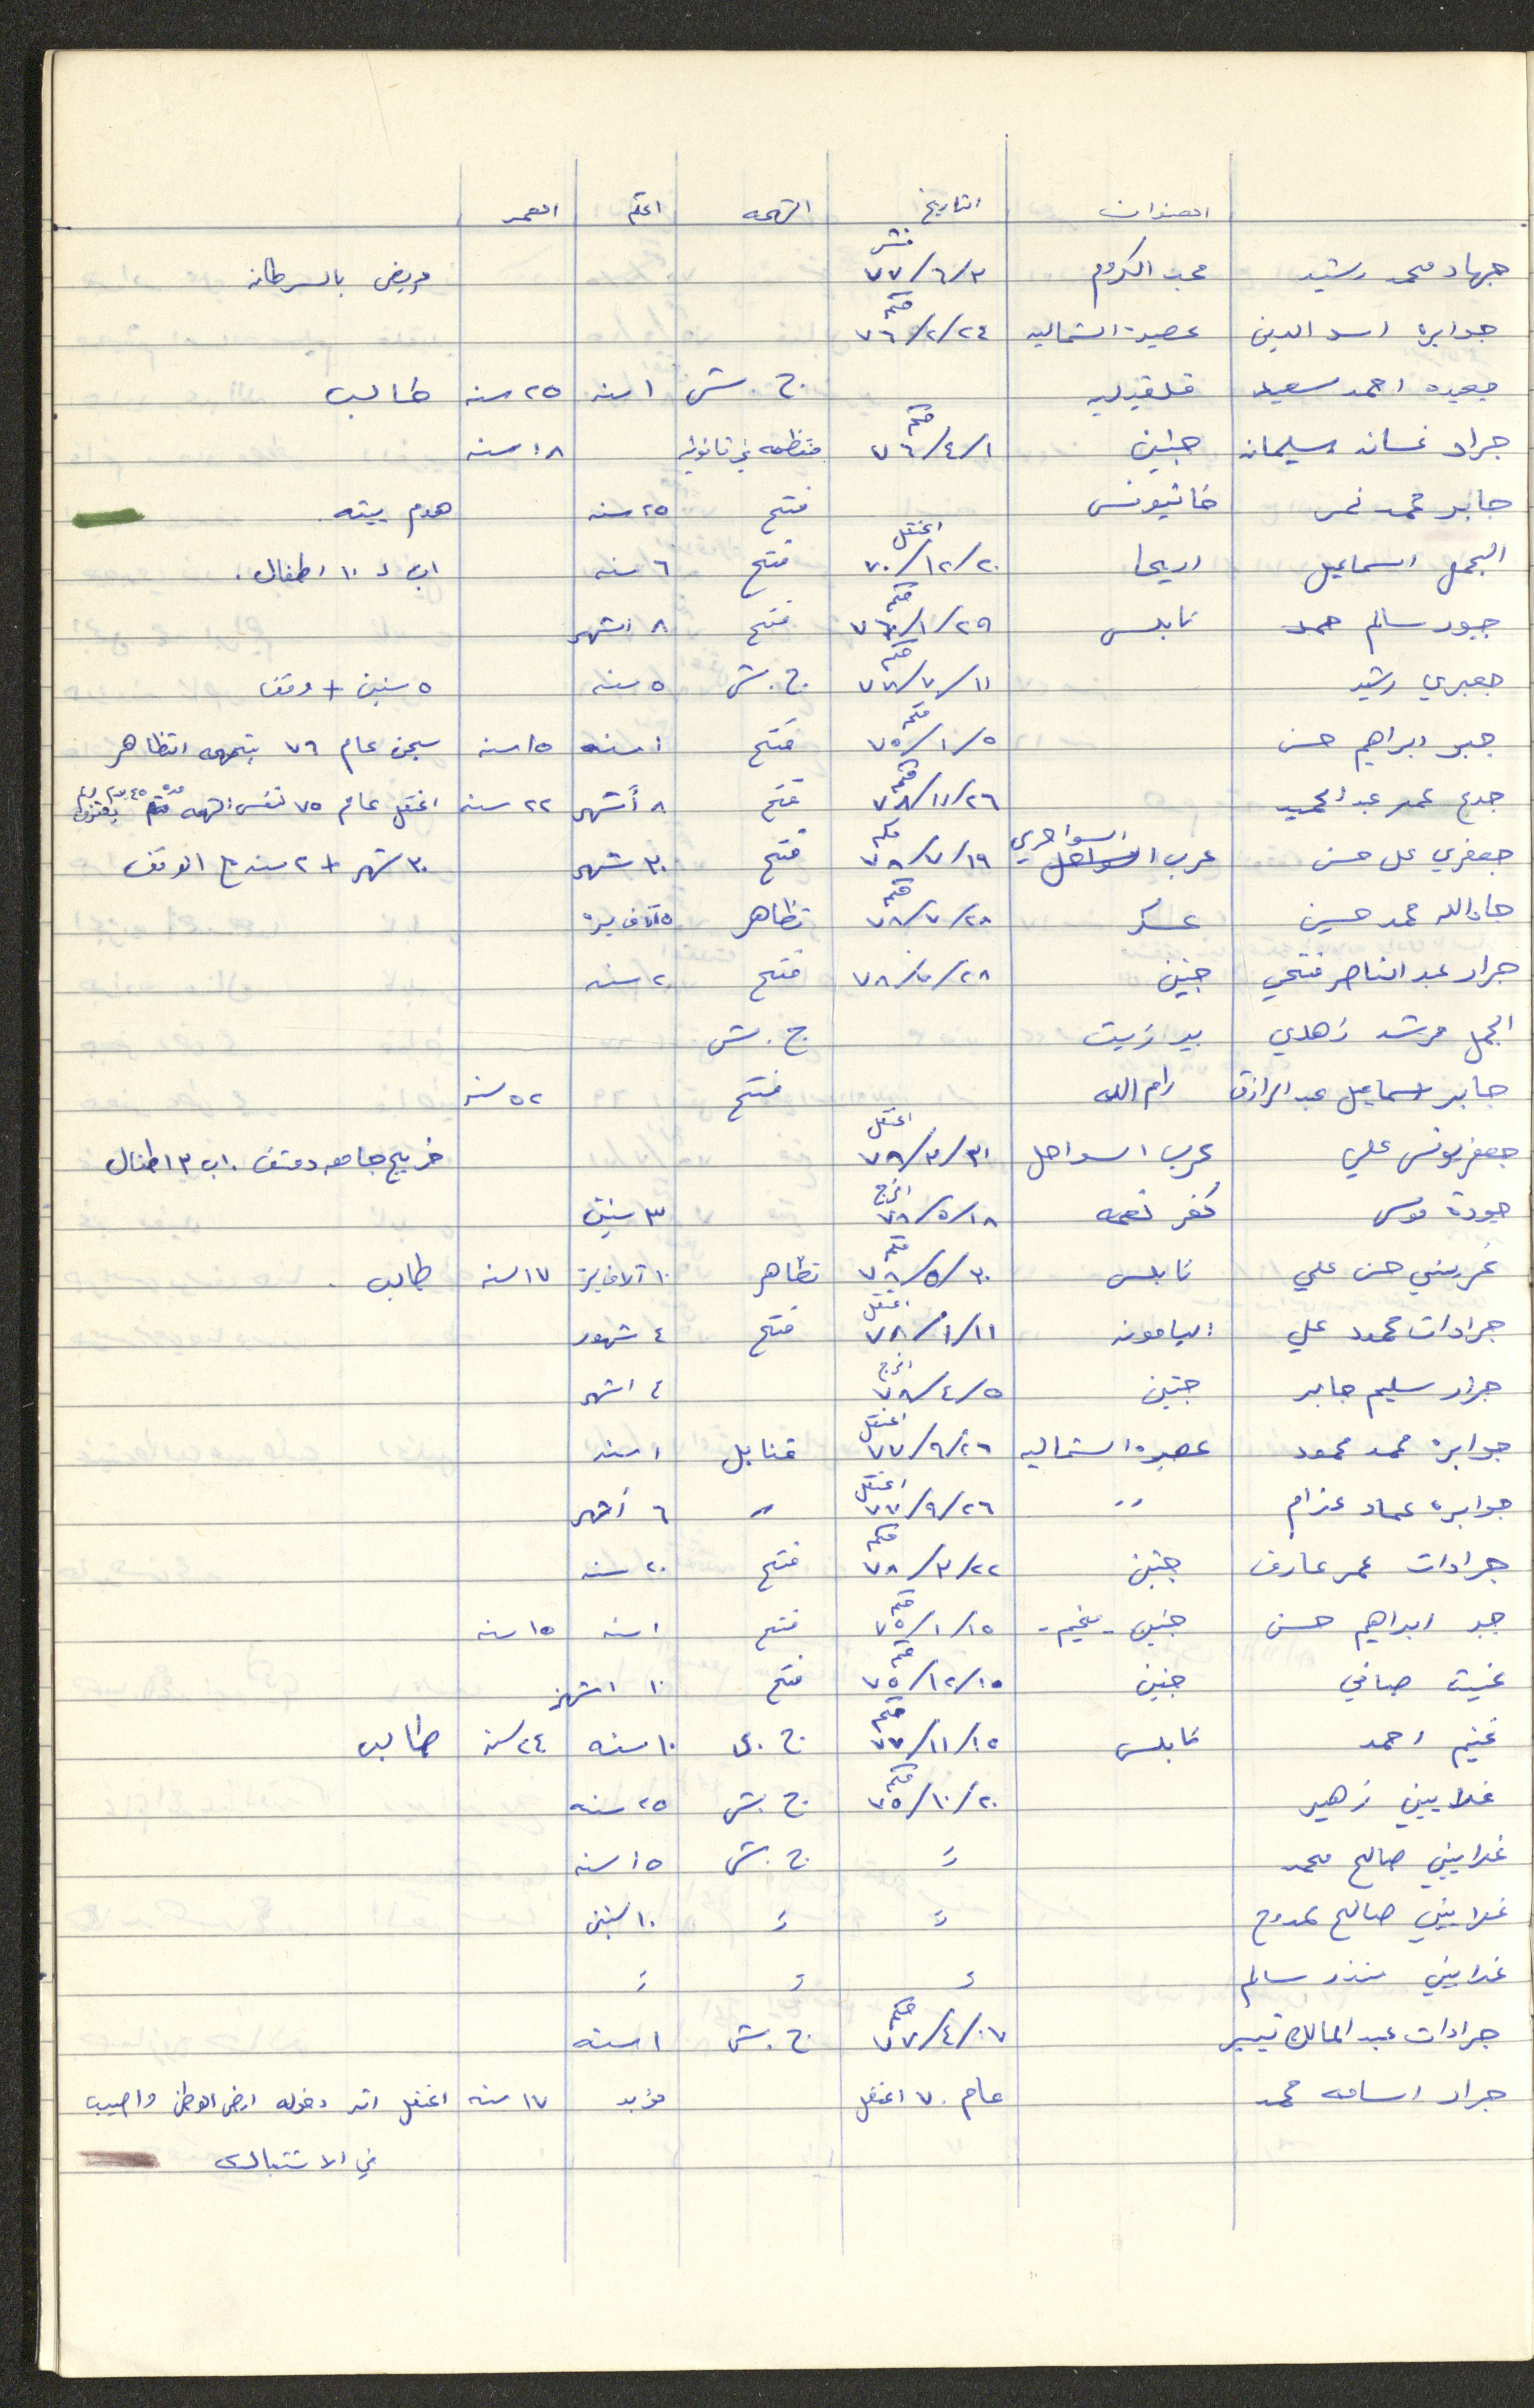 العنوان التاريخ التهمه الحكم العمر
جهاد محمد رشيد مجد الكروم نشر ٧٧/٦/٣ مريض بالسرطان
جوابره اسد الدين عصيرة الشماليه حكم ٧٦/٢/٢٤
جعيده احمد سعيد قلقيليه ج.ش ١ سنه ٢٥ سنه طالب
جرار غسان سليمان جنين حكم ٧٦/٤/١ منظمه غير قانونيه ١٨ سنه
جابر محمد نمر خانيونس فتح ٢٥ سنه هدم بيته
الجمل اسماعيل اريحا اعتقل ٧٠/١٢/٢٠ فتح ٦ سنه اب لـ ١٠ اطفال.
جبور سالم حمد نابلس حكم ٧٦/١/٢٩ فتح ٨ اشهر
جعبري رشيد حكم ٧٧/٧/١١ ج.ش ٥ سنه ٥ سنين + وقف
جبر ابراهيم حسن حكم ٧٥/١/٥ فتح ١ سنه ١٥ سنه سجن عام ٧٦ بتهمه التظاهر
جدع عمر عبد الحميد حكم ٧٨/١١/٢٦ فتح ٨ أشهر ٢٢ سنه اعتقل عام ٧٥ نفس التهمه مده ٤٥ يوم
جعفري علي حسن عرب السواحري حكم ٧٨/٧/١٩ فتح ٣٠ شهر ٣٠ شهر + ٢ سنه مع الوقف
جادالله محمد حسين عسكر حكم ٧٨/٧/٢٨ تظاهر ٥ آلاف ليره
جرار عبد الناصر فتحي جنين ٧٨/٧/٢٨ فتح ٢٠ سنه
الجمل مرشد زهدي بير زيت ج.ش
جابر اسماعيل عبد الرازق رام الله فتح ٥٢ سنه
جعفر يونس علي عرب السواحل اعتقل ٧٨/٣/٣١ خريج جامعه دمشق. اب ٣ اطفال
جودة موسى كفر نعمه افرج ٧٨/٥/١٨ ٣ سنين
غريني حسن علي نابلس حكم ٧٨/٥/٣٠ تظاهر ١٠ آلاف ليره ١٧ سنه طالب.
جرادات محمود علي اليامونه اعتقل ٧٨/١/١١ فتح ٤ شهور
جرار سليم جابر جنين افرج ٧٨/٤/٥ ٤ اشهر
جوابره محمد محمود عصيره الشماليه اعتقل ٧٧/٩/٢٦ قنابل ١ سنه
جوابره عماد عزام " اعتقل ٧٧/٩/٢٦ " ٦ أشهر
جرادات عمر عارف جنين حكم ٧٨/٣/٢٢ فتح ٢٠ سنه
جبر ابراهيم حسن جنين - مخيم - حكم ٧٥/١/١٥ فتح ١ سنه ١٥ سنه
غيث صافي جنين حكم ٧٥/١٢/١٥ فتح ١٠ اشهر
غنيم احمد نابلس حكم ٧٧/١١/١٥ ج.ع ١٠ سنه ٢٤ سنه طالب
غلاييني زهير حكم ٧٥/١٠/٢٠ ج.ش ٢٥ سنه
غلاييني صالح محمد " ج.ش ١٥ سنه
غلاييني صالح ممدوح " " ١٠ سنين
غلاييني منذر سالم " " "
جرادات عبد المالك تيسير حكم ٧٧/٤/١٧ ج.ش ١ سنه
جرار اسامه محمد عام ٧٠ اعتقل مؤبد ١٧ سنه اعتقل اثر دخوله ارض الوطن واصيب
في الاشتباك